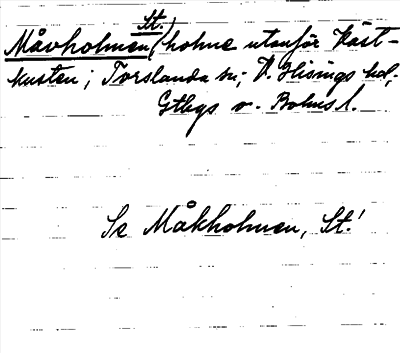 Måvholmen, St.) holme utanför Väst-
kusten; Torslanda sn; V. Hisings hd,
Gtbgs o. Bohus l.
Se Måkholmen, St.!